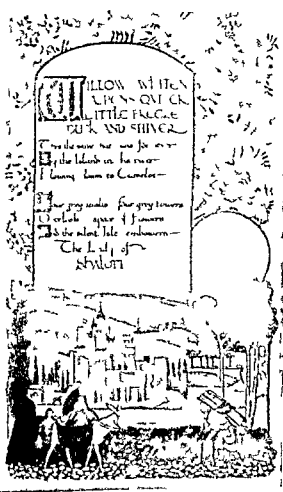 WILLOW WHITEN
ASPENS QUIVER
LITTLE BREEZE
DUSK AND SHIVER
Thro the wave that runs for ever
By the Island in the river
Flowing down to Camelot
Four grey walls four grey towers
Overlook a space of flowers
And the silent Isle embowers
The Lady of
Shalott